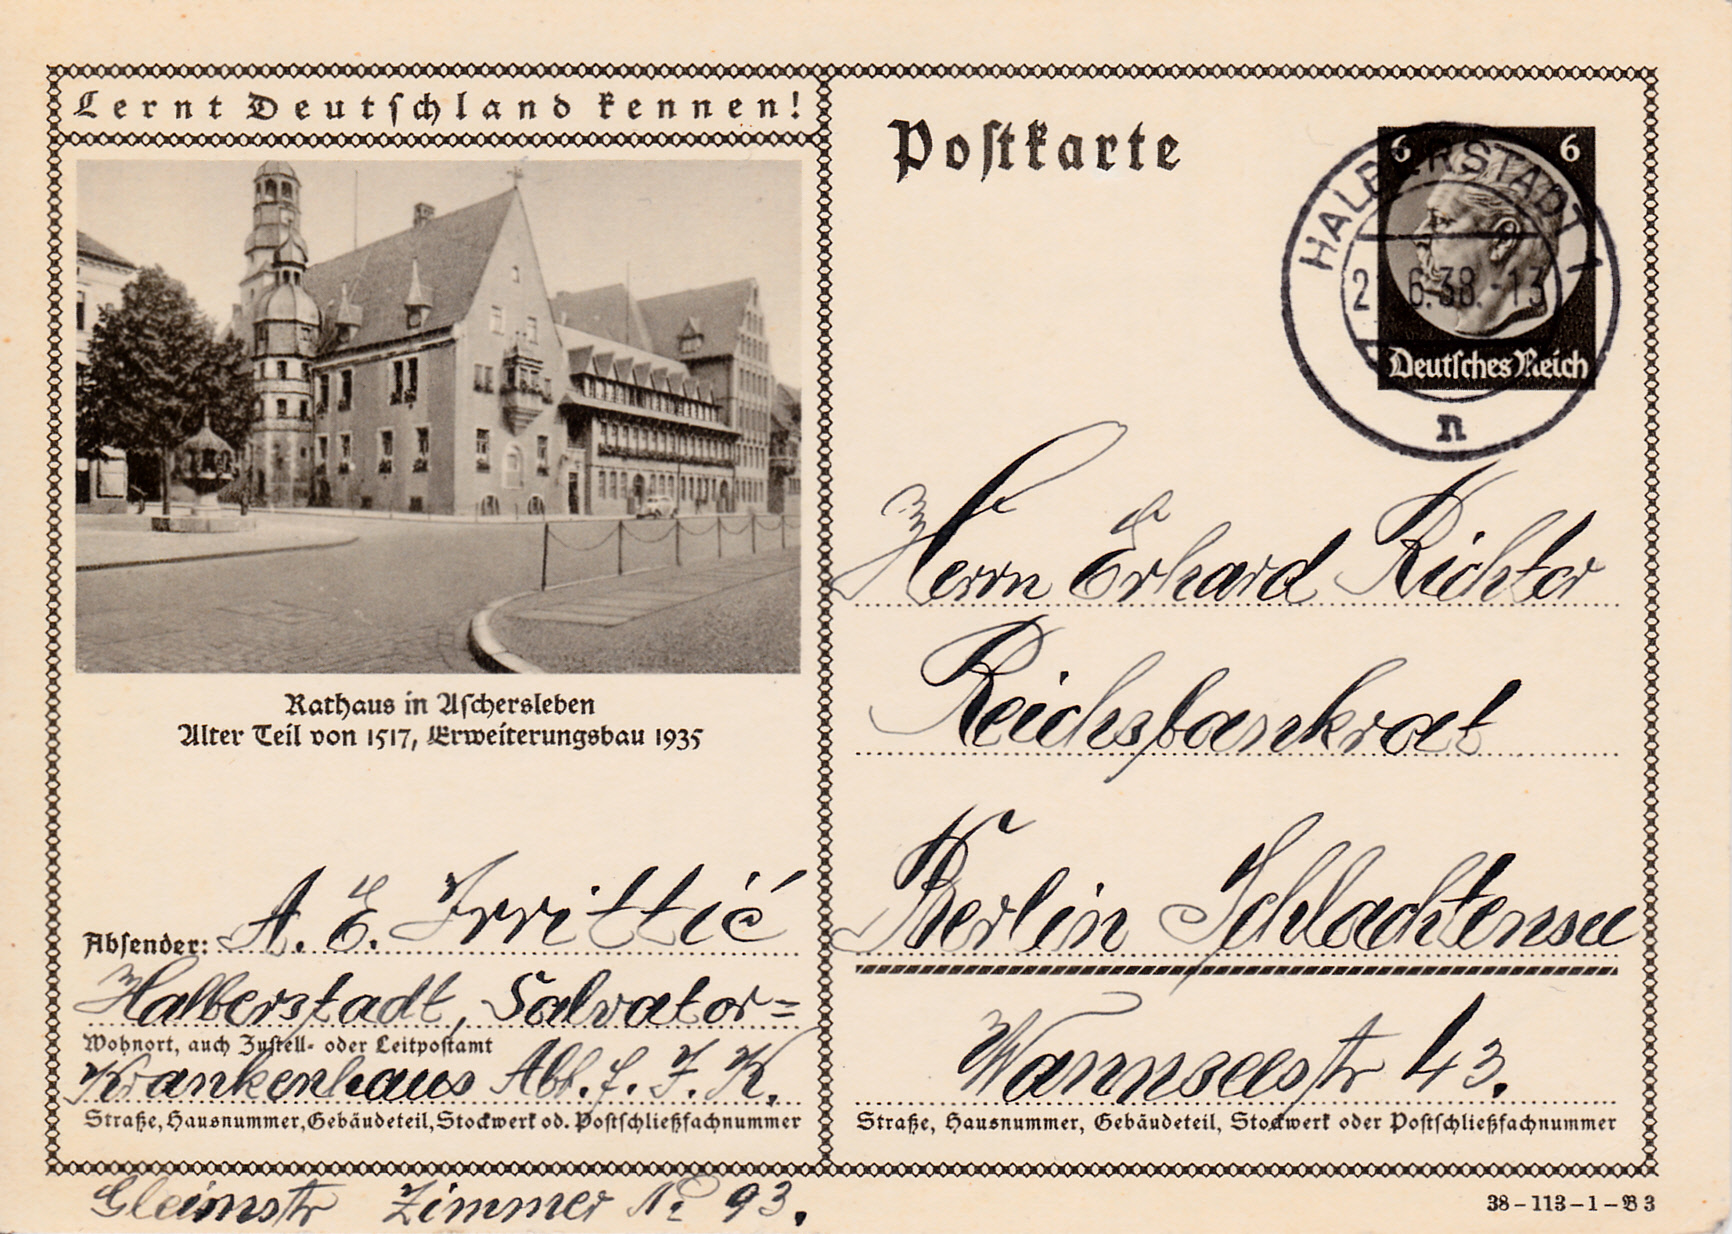 Lernt Deutschland kennen!
Rathaus in Aschersleben
Alter Teil von 1517, Erweiterungsbau 1935
Absender: A. E. Irrittić
Halberstadt, Salvator=
Wohnort, auch Zustell- oder Leitpostamt
Krankenhaus Abt. f. I. K.
Straße, Hausnummer, Gebäudeteil, Stockwerk od. Postschließfachnummer
Gleimstr Zimmer No 93.
Postkarte
6 6
Deutsches Reich
HALBERSTADT 1
6.38.-13
n
Herrn Erhard Richter
Reichsbankrat
Berlin Schlachtensee
Wannseestr 43.
Straße, Hausnummer, Gebäudeteil, Stockwerk oder Postschließfachnummer
38-113-1-B3